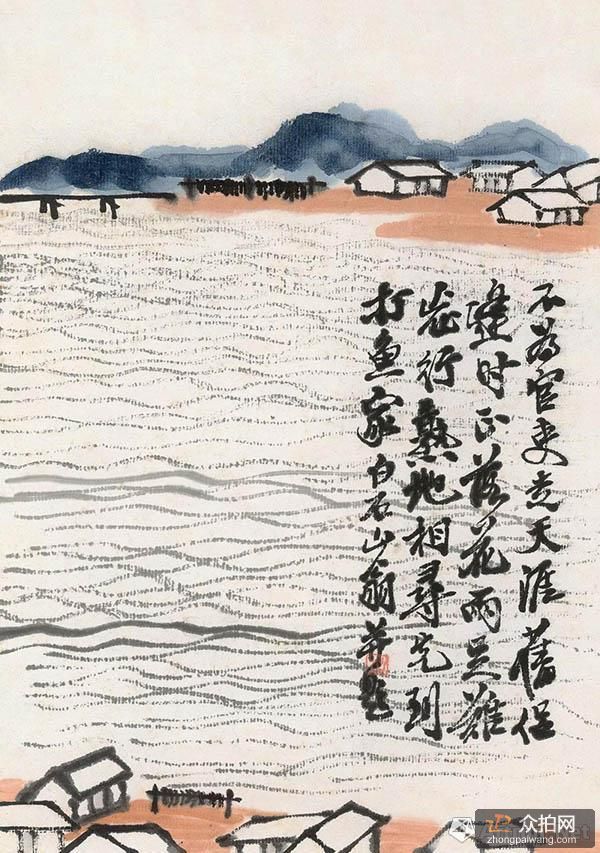 不為官吏走天涯舊侶
逢时正落花兩足雖
行熟地相尋先到
打魚家白石山翁并題
众拍网
zhongpaiwang.com